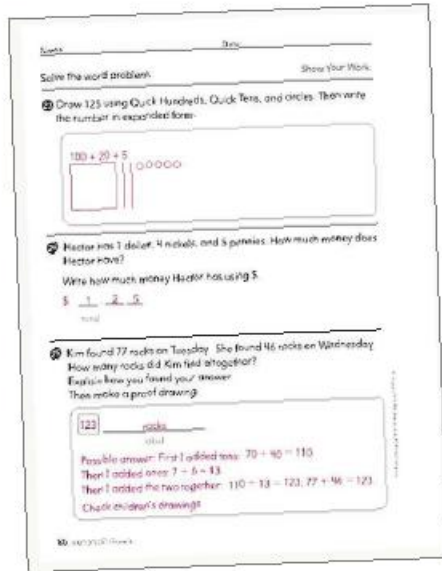 Name Date
Solve the word problem. Show Your Work.
23 Draw 125 using Quick Hundreds, Quick Tens, and circles. Then write
the number in expanded form.
100 + 20 + 5
Hector has 1 dollar, 4 nickels, and 5 pennies. How much money does
Hector have?
Write how much money Hector has using $.
$ 1 2 5
total
25 Kim found 77 rocks on Tuesday. She found 46 rocks on Wednesday.
How many rocks did Kim find altogether?
Explain how you found your answer.
Then make a proof drawing.
123 rocks
label
Possible answer: First I added tens: 70 + 40 = 110.
Then I added ones: 7 + 6 = 13.
Then I added the two together: 110 + 13 = 123; 77 + 46 = 123.
Check children's drawings.